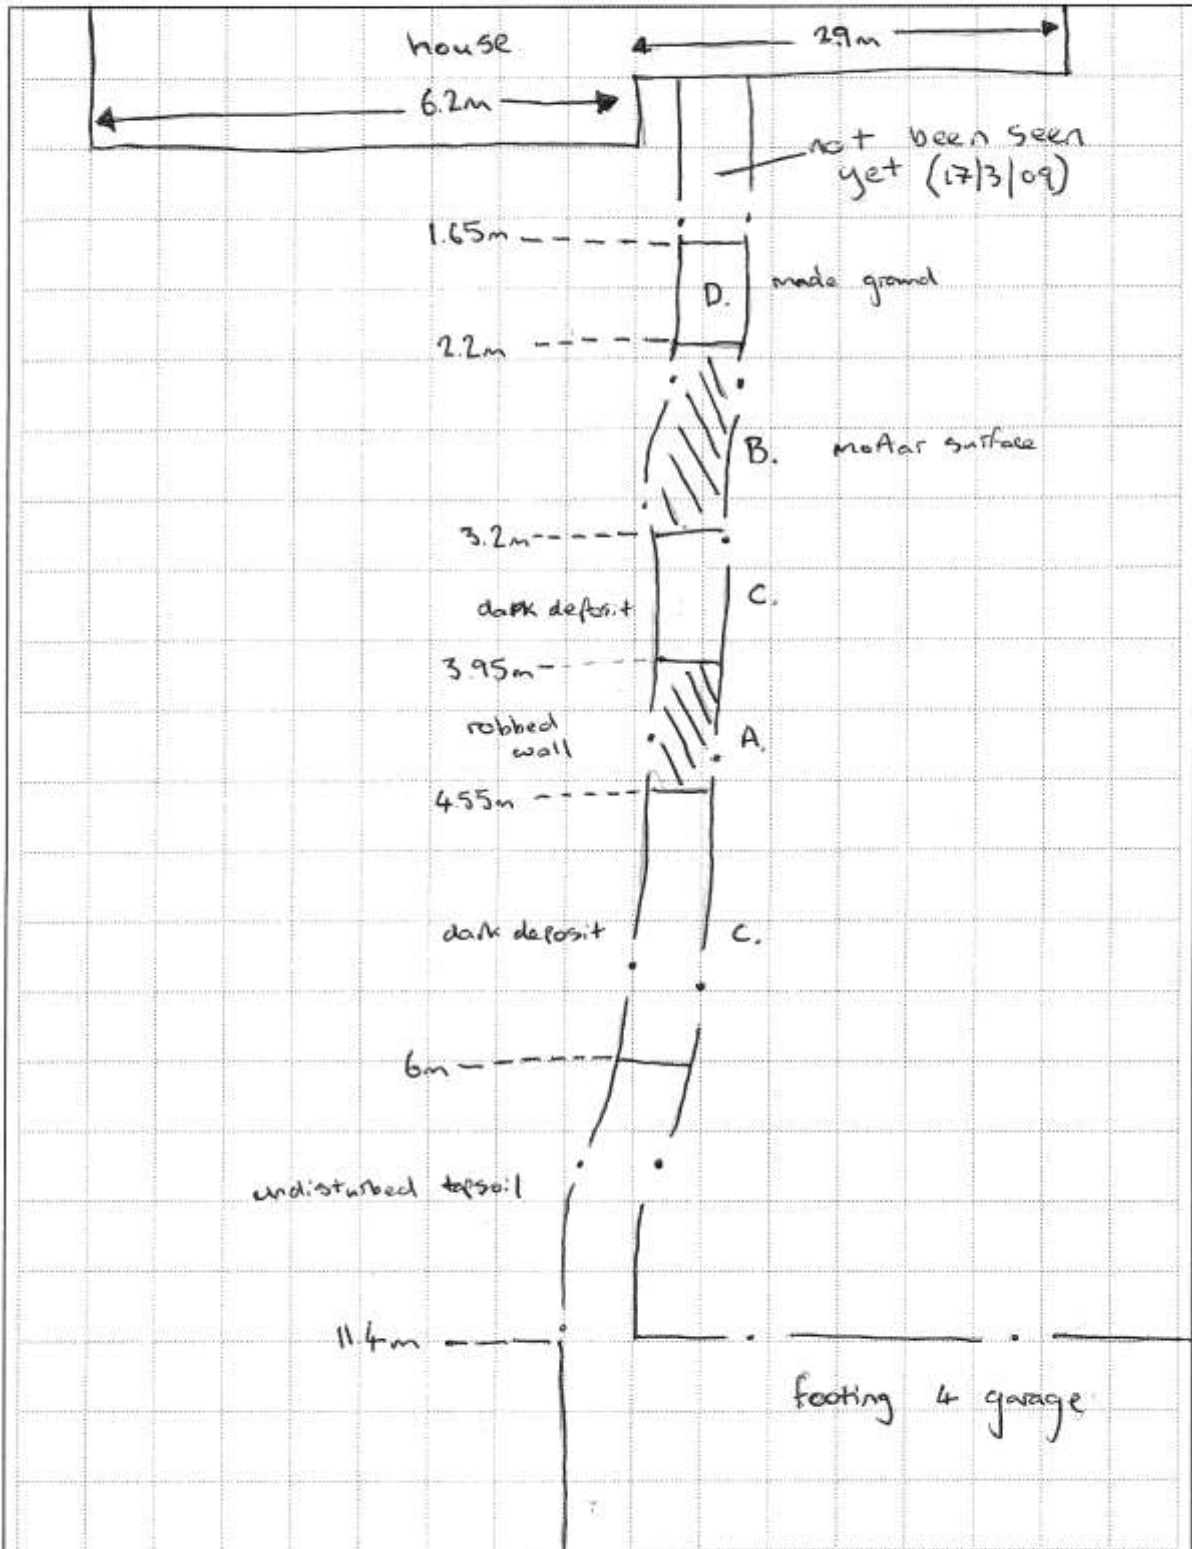 house
2.9m
6.2m
not been seen
yet (17/3/09)
1.65m
D.
made ground
2.2m
B.
mortar surface
3.2m
dark deposit
C.
3.95m
robbed
wall
A.
4.55m
dark deposit
C.
6m
undisturbed topsoil
11.4m
footing 4 garage